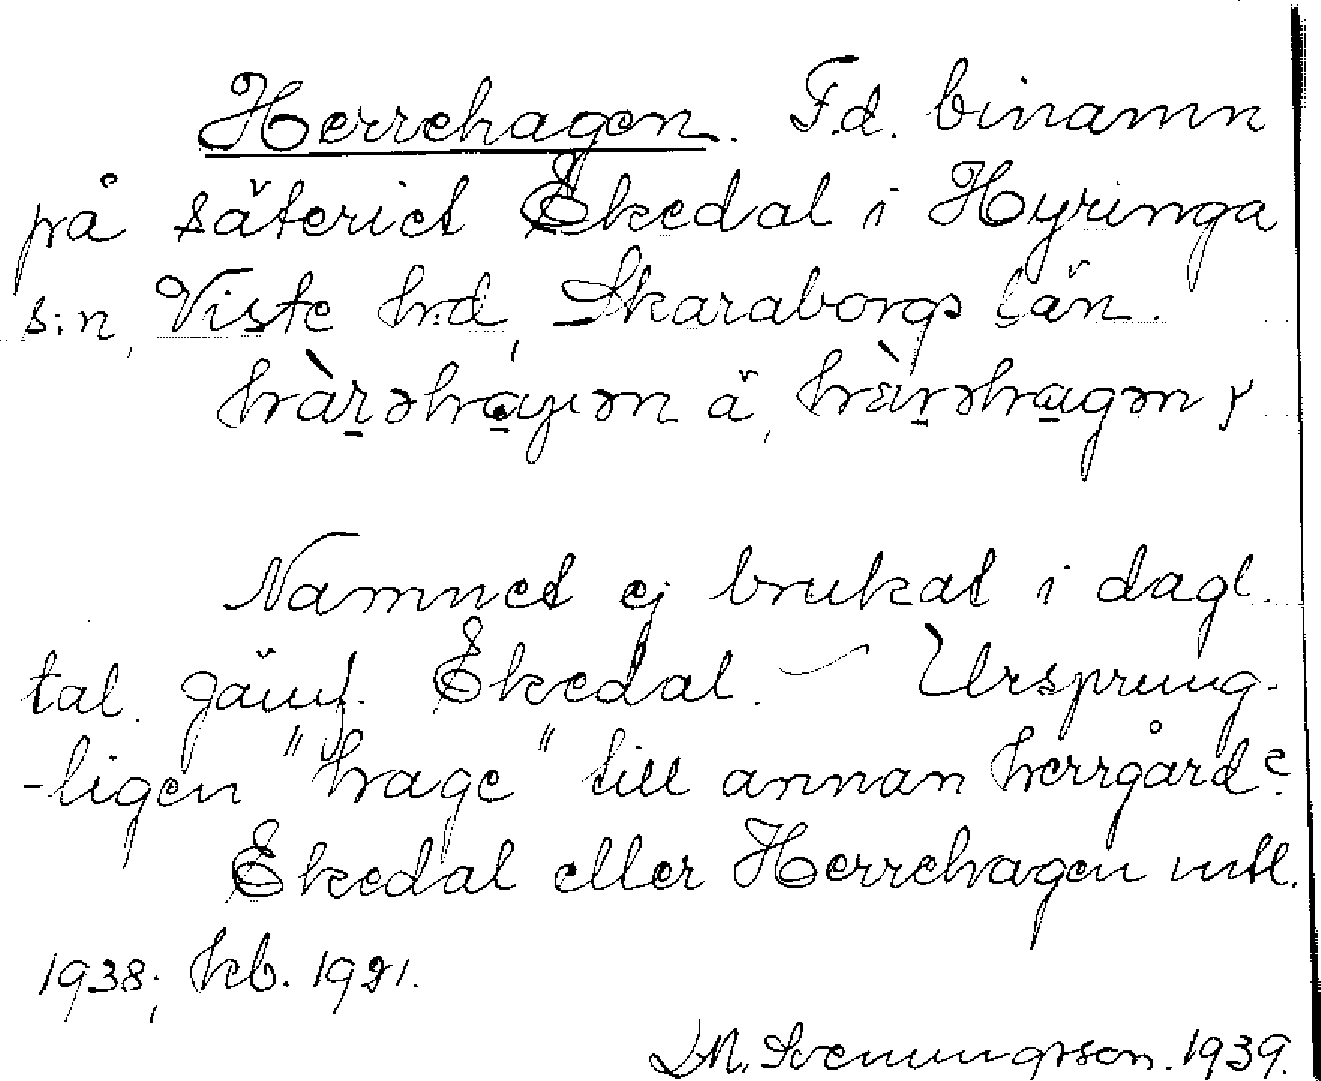 Herrehagen. F.d. binamn
på säteriet Ekedal i Hyringa
s:n, Viste hd, Skaraborgs län.
hàrəhaɡən ä, hàrəhagən y
Namnet ej brukat i dagl.
tal. Jämf. Ekedal. – Ursprung-
-ligen "hage" till annan herrgård?
Ekedal eller Herrehagen mtl.
1938; kb. 1921.
D.M. Svenungsson. 1939.